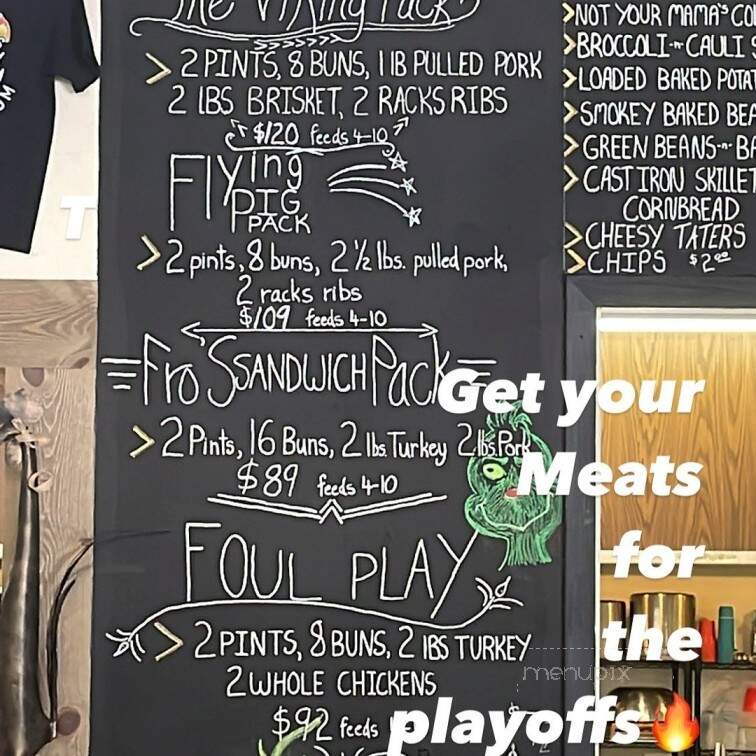 The Viking Pack
> 2 PINTS, 8 BUNS, 1 lB PULLED PORK
2 lBS BRISKET, 2 RACKS RIBS
$120 feeds 4-10
Flying
PIG
PACK
> 2 pints, 8 buns, 2 ½ lbs. pulled pork,
2 racks ribs
$109 feeds 4-10
Fro's SANDWICH Pack
> 2 Pints, 16 Buns, 2 lbs. Turkey 2 lbs. Pork
$89 feeds 4-10
FOUL PLAY
> 2 PINTS, 8 BUNS, 2 lBS TURKEY
2 WHOLE CHICKENS
$92 feeds
> NOT YOUR MAMA'S
> BROCCOLI -n- CAULI
> LOADED BAKED
> SMOKEY BAKED
> GREEN BEANS -n-
> CAST IRON SKILLET
CORNBREAD
> CHEESY TATERS
> CHIPS $2.00
Get your
Meats
for
the
playoffs🔥
menupix